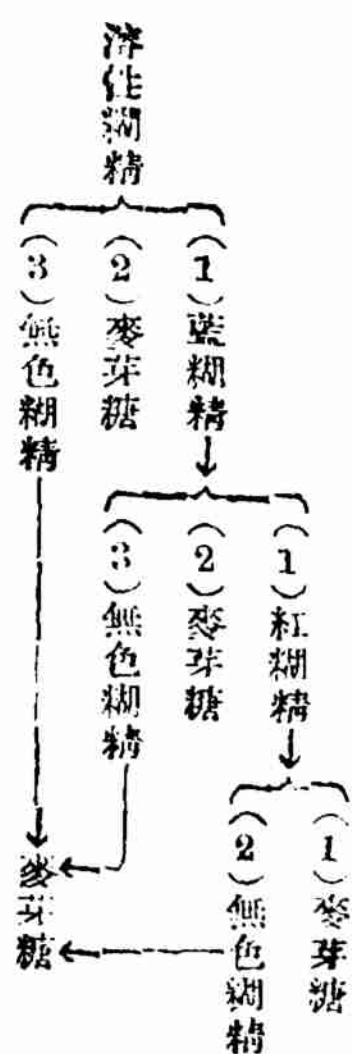 溶性糊精
(1)藍糊精
(2)麥芽糖
(3)無色糊精
(1)紅糊精
(2)麥芽糖
(3)無色糊精
(1)麥芽糖
(2)無色糊精
麥芽糖